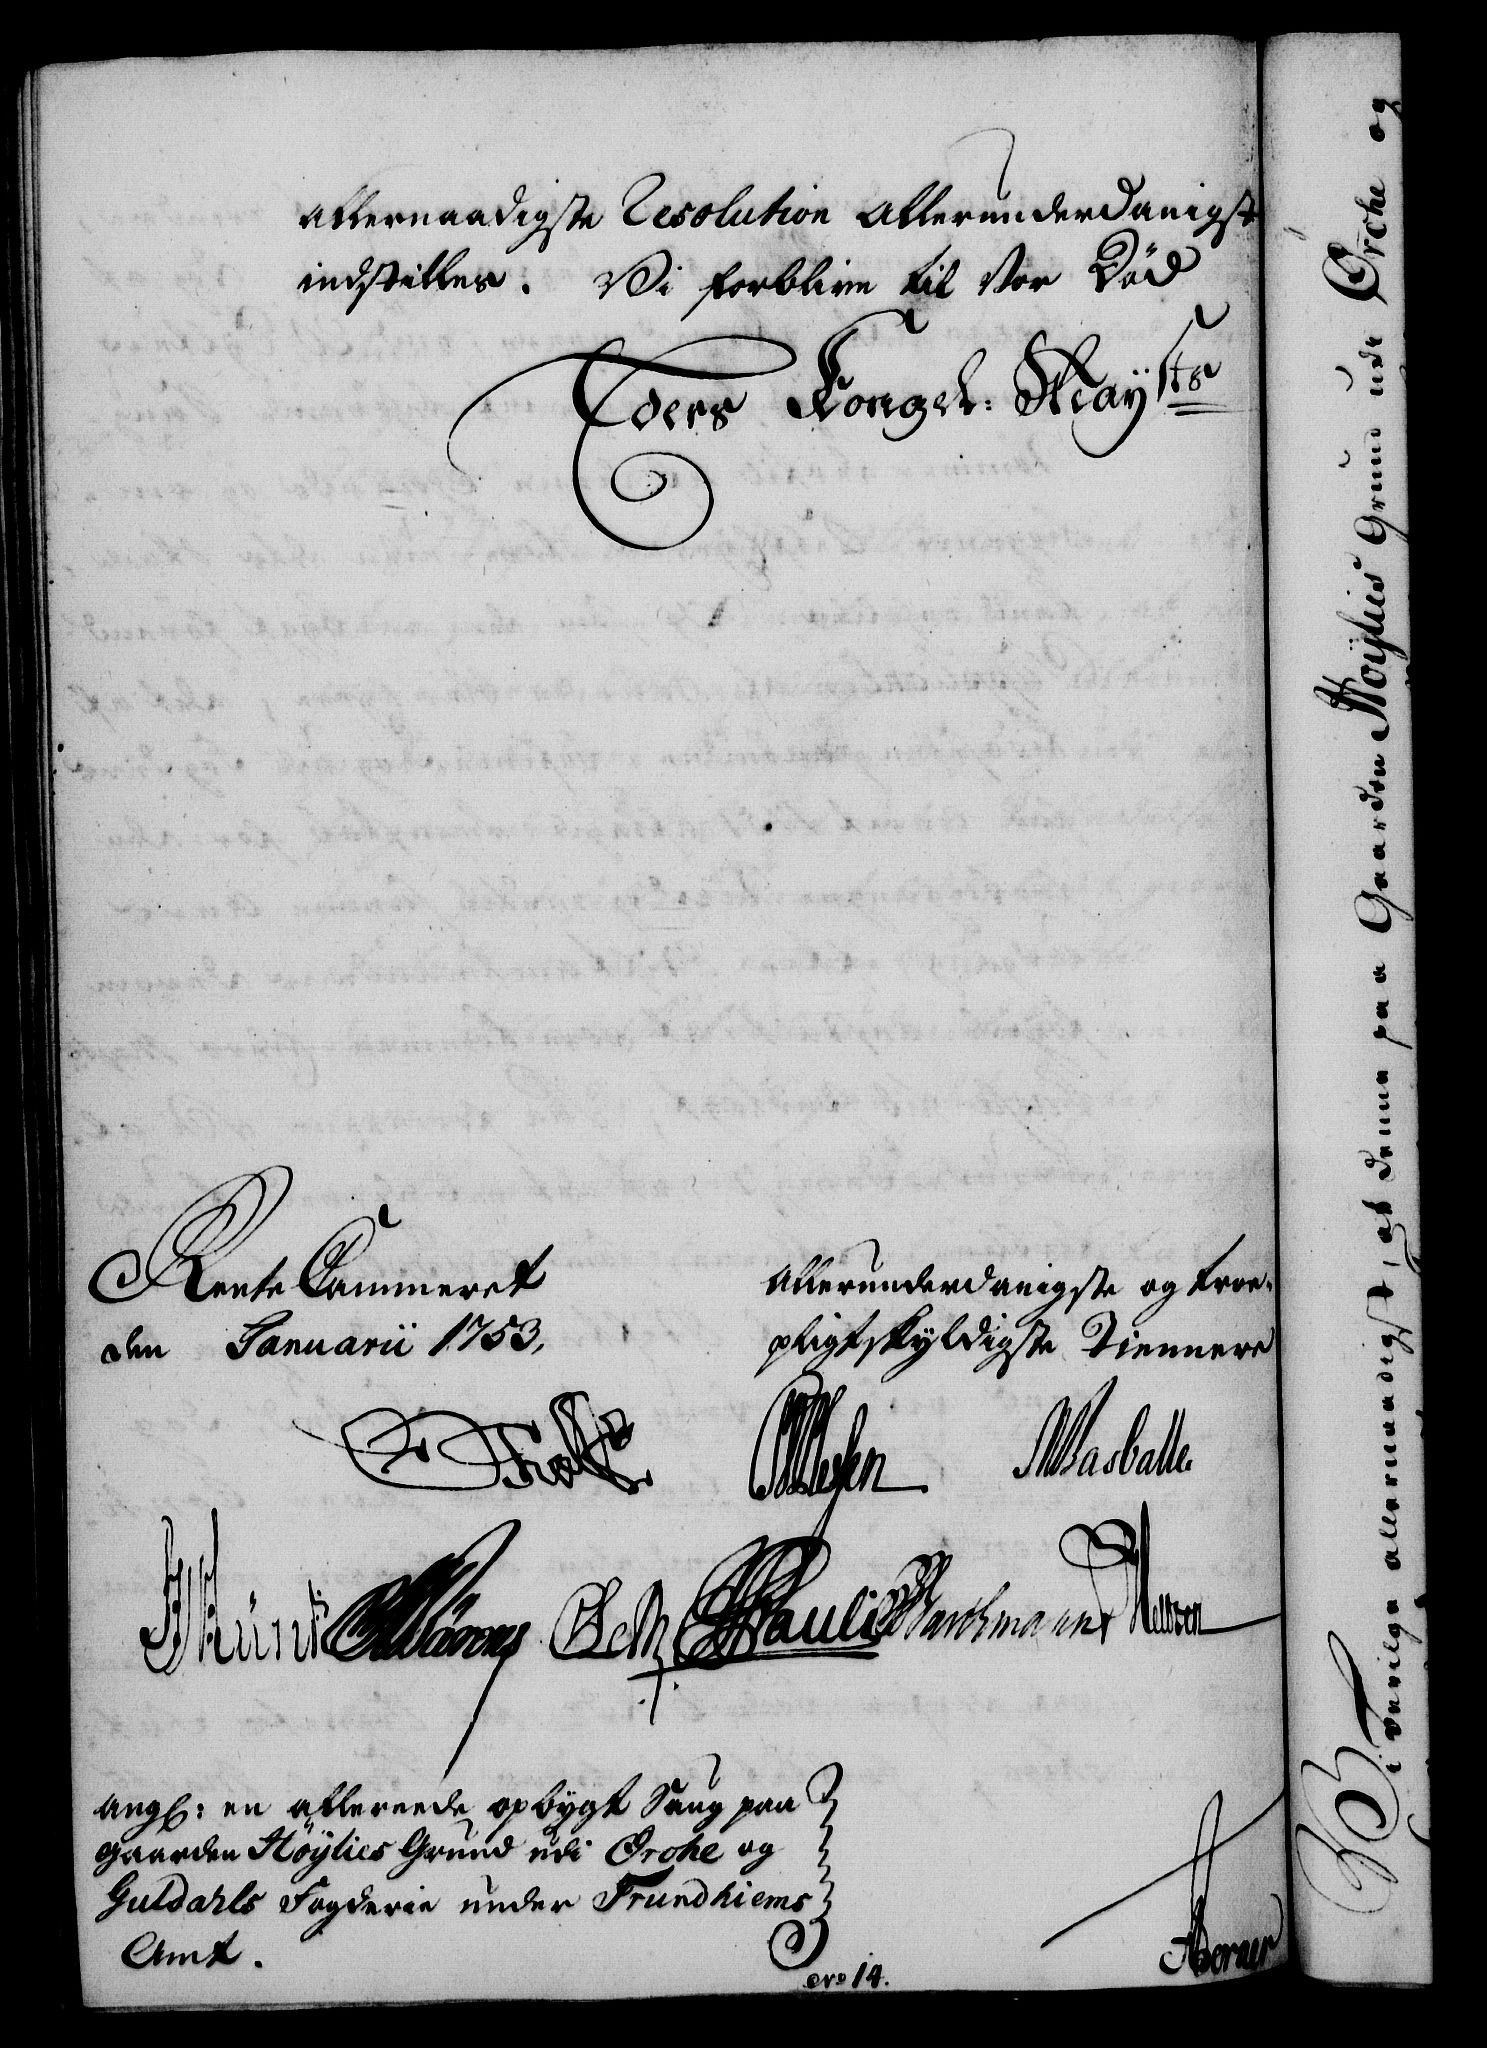 allernaadigste Resolution allerunderdanigst
indstilles. Vi forblive til Vor Död
Eders Kongel: Mayts
Rente Cammeret
den Januarii 1753.
Allerunderdanigste og troe-
pligtskyldigste Tiennere
Masballe.
Pauli
Barthmann
ang: en allereede opbygt Saug paa
gaarden Höylies Grund udi Orche og
Guldahls Fogderie under Trundhiems
Amt.
No 14.
Berner
Bevilge allernaadigst, at denne paa Gaarden Höylies Grund udi Orche og